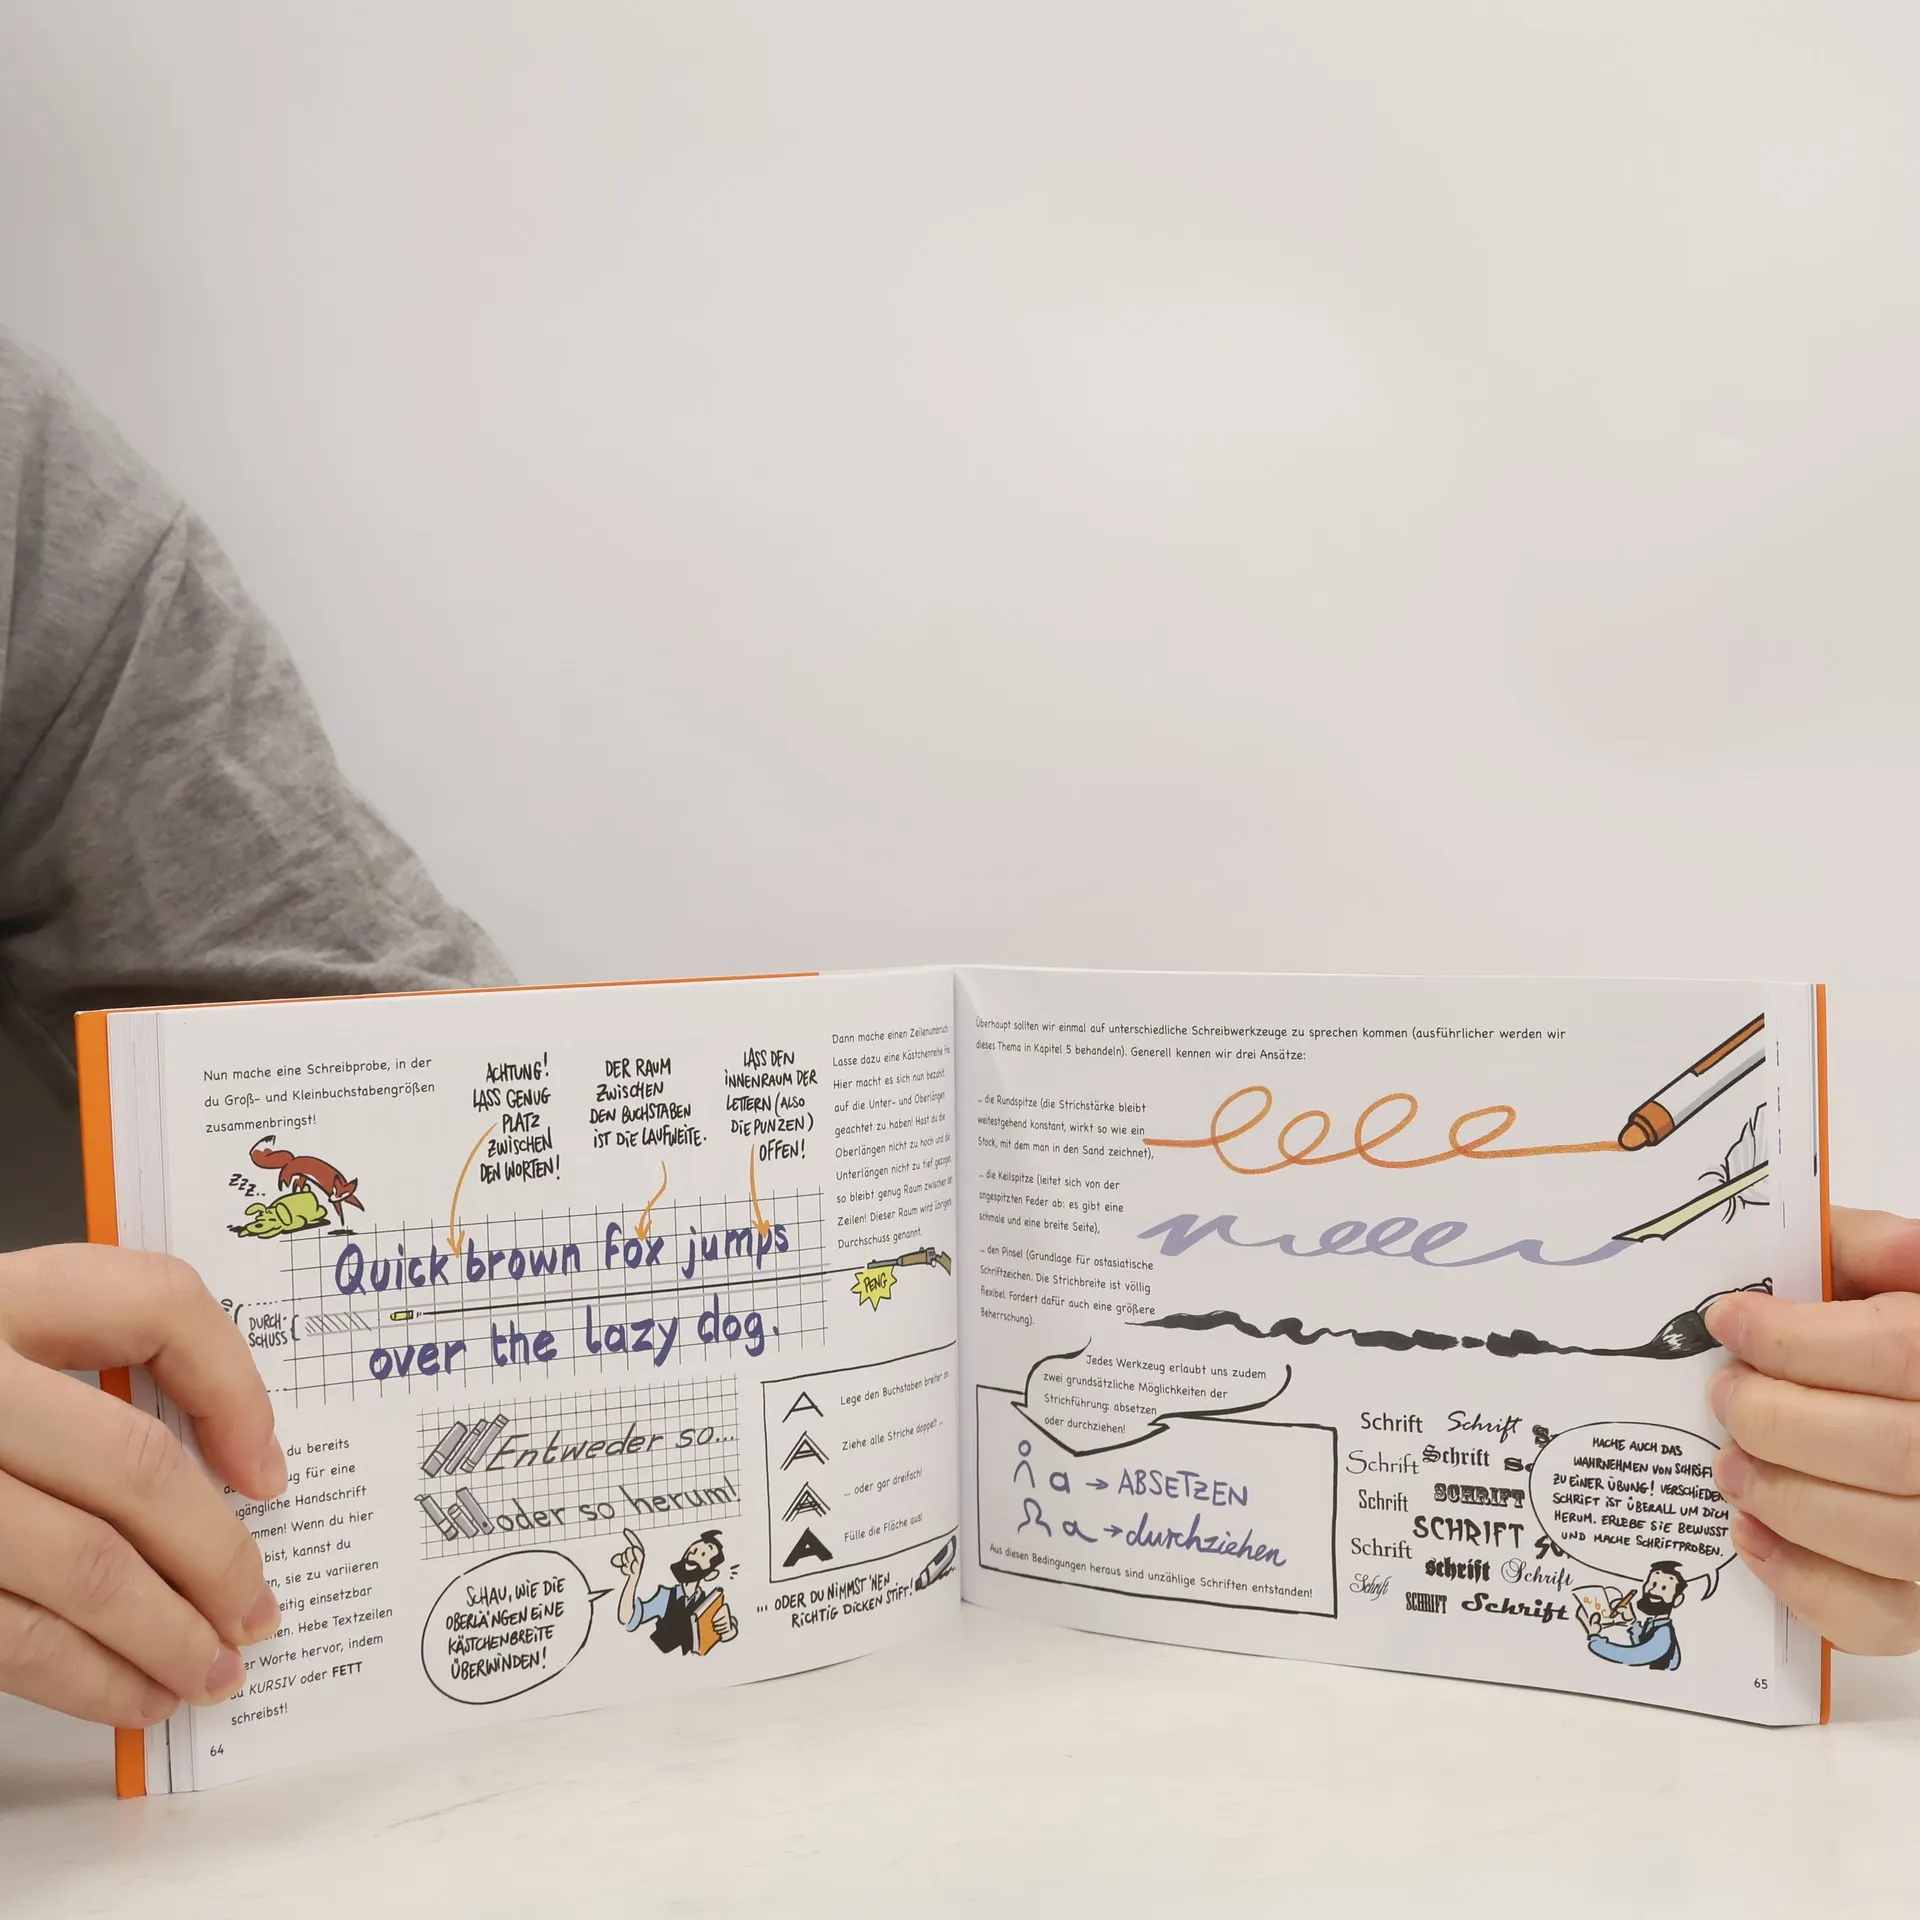 Nun mache eine Schreibprobe, in der
du Groß- und Kleinbuchstabengrößen
zusammenbringst!
ZZZ..
ACHTUNG!
LASS GENUG
PLATZ
ZWISCHEN
DEN WORTEN!
DER RAUM
ZWISCHEN
DEN BUCHSTABEN
IST DIE LAUFWEITE.
LASS DEN
INNENRAUM DER
LETTERN (ALSO
DIE PUNZEN)
OFFEN!
Dann mache einen Zeilenumbruch
Lasse dazu eine Kästchenreihe
Hier macht es sich nun bezahlt,
auf die Unter- und Oberlängen
geachtet zu haben! Hast du die
Oberlängen nicht zu hoch und die
Unterlängen nicht zu tief gezogen
so bleibt genug Raum zwischen den
Zeilen! Dieser Raum wird übrigens
Durchschuss genannt.
Quick brown fox jumps
PENG
DURCH-
SCHUSS
over the lazy dog.
du bereits
für eine
Handschrift
Wenn du hier
bist, kannst du
sie zu variieren
einsetzbar
Hebe Textzeilen
Worte hervor, indem
KURSIV oder FETT
schreibst!
Entweder so...
oder so herum!
SCHAU, WIE DIE
OBERLÄNGEN EINE
KÄSTCHENBREITE
ÜBERWINDEN!
Lege den Buchstaben breiter an
Ziehe alle Striche doppelt ...
... oder gar dreifach!
Fülle die Fläche aus!
... ODER DU NIMMST 'NEN
RICHTIG DICKEN STIFT!
64
Überhaupt sollten wir einmal auf unterschiedliche Schreibwerkzeuge zu sprechen kommen (ausführlicher werden wir
dieses Thema in Kapitel 5 behandeln). Generell kennen wir drei Ansätze:
... die Rundspitze (die Strichstärke bleibt
weitestgehend konstant, wirkt so wie ein
Stock, mit dem man in den Sand zeichnet),
... die Keilspitze (leitet sich von der
angespitzten Feder ab: es gibt eine
schmale und eine breite Seite),
... den Pinsel (Grundlage für ostasiatische
Schriftzeichen. Die Strichbreite ist völlig
flexibel. Fordert dafür auch eine größere
Beherrschung).
Jedes Werkzeug erlaubt uns zudem
zwei grundsätzliche Möglichkeiten der
Strichführung: absetzen
oder durchziehen!
a → ABSETZEN
a → durchziehen
Aus diesen Bedingungen heraus sind unzählige Schriften entstanden!
Schrift Schrift
Schrift Schrift
Schrift SCHRIFT
SCHRIFT
Schrift schrift Schrift
Schrift SCHRIFT Schrift
MACHE AUCH DAS
WAHRNEHMEN VON SCHRIFT
ZU EINER ÜBUNG! VERSCHIEDENE
SCHRIFT IST ÜBERALL UM DICH
HERUM. ERLEBE SIE BEWUSST
UND MACHE SCHRIFTPROBEN.
abc
65